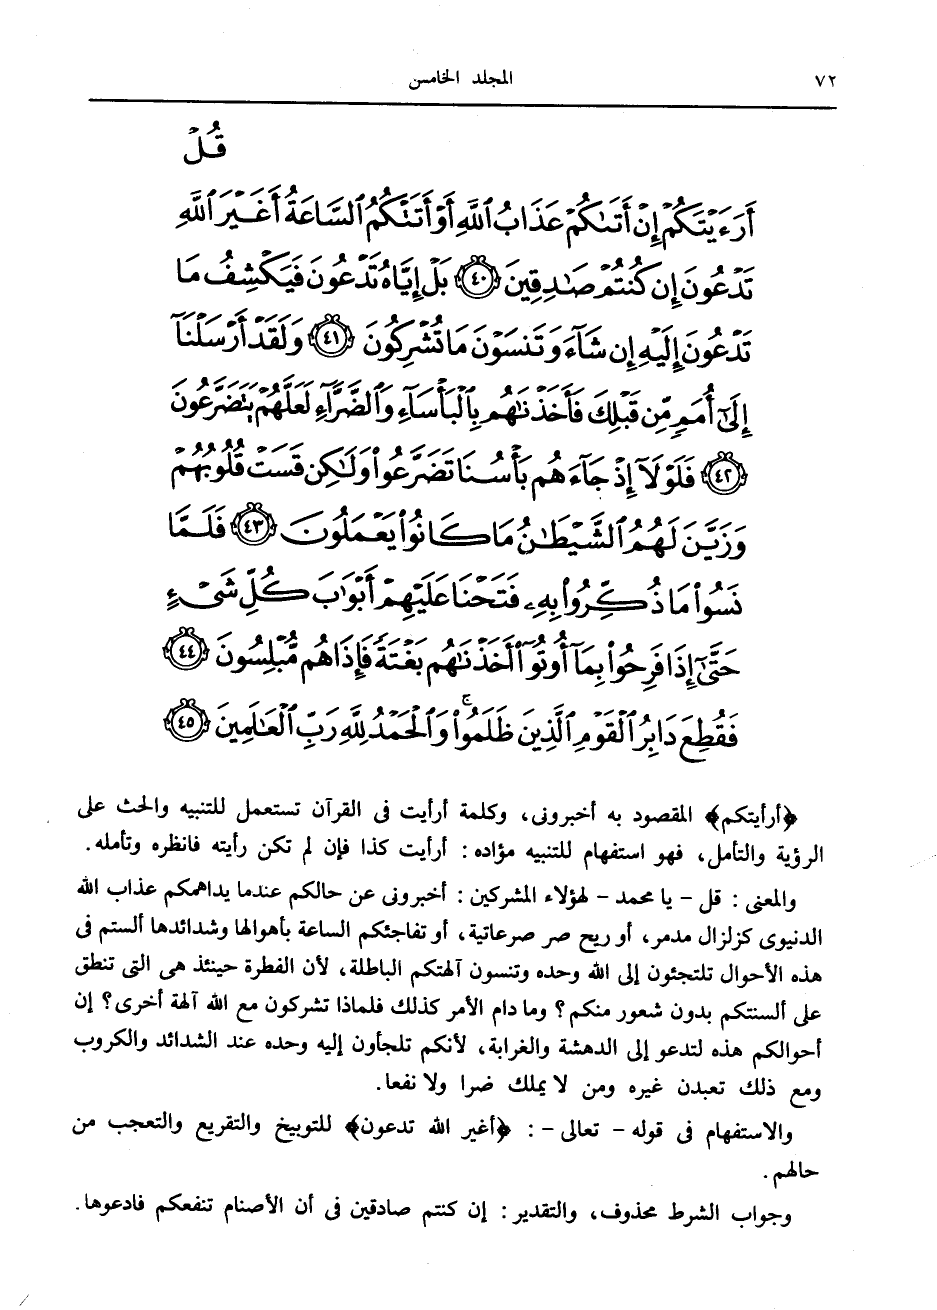 ٧٢ المجلد الخامس
قُلْ
أَرَءَيْتَكُمْ إِنْ أَتَىٰكُمْ عَذَابُ ٱللَّهِ أَوْ أَتَتْكُمُ ٱلسَّاعَةُ أَغَيْرَ ٱللَّهِ
تَدْعُونَ إِن كُنتُمْ صَٰدِقِينَ ﴿٤٠﴾ بَلْ إِيَّاهُ تَدْعُونَ فَيَكْشِفُ مَا
تَدْعُونَ إِلَيْهِ إِن شَآءَ وَتَنسَوْنَ مَا تُشْرِكُونَ ﴿٤١﴾ وَلَقَدْ أَرْسَلْنَآ
إِلَىٰٓ أُمَمٍ مِّن قَبْلِكَ فَأَخَذْنَٰهُم بِٱلْبَأْسَآءِ وَٱلضَّرَّآءِ لَعَلَّهُمْ يَتَضَرَّعُونَ
﴿٤٢﴾ فَلَوْلَآ إِذْ جَآءَهُم بَأْسُنَا تَضَرَّعُوا۟ وَلَٰكِن قَسَتْ قُلُوبُهُمْ
وَزَيَّنَ لَهُمُ ٱلشَّيْطَٰنُ مَا كَانُوا۟ يَعْمَلُونَ ﴿٤٣﴾ فَلَمَّا
نَسُوا۟ مَا ذُكِّرُوا۟ بِهِۦ فَتَحْنَا عَلَيْهِمْ أَبْوَٰبَ كُلِّ شَىْءٍ
حَتَّىٰٓ إِذَا فَرِحُوا۟ بِمَآ أُوتُوٓا۟ أَخَذْنَٰهُم بَغْتَةً فَإِذَا هُم مُّبْلِسُونَ ﴿٤٤﴾
فَقُطِعَ دَابِرُ ٱلْقَوْمِ ٱلَّذِينَ ظَلَمُوا۟ ۚ وَٱلْحَمْدُ لِلَّهِ رَبِّ ٱلْعَٰلَمِينَ ﴿٤٥﴾
﴿أرأيتكم﴾ المقصود به أخبرونى، وكلمة أرأيت فى القرآن تستعمل للتنبيه والحث على
الرؤية والتأمل، فهو استفهام للتنبيه مؤاده : أرأيت كذا فإن لم تكن رأيته فانظره وتأمله .
والمعنى : قل – يا محمد – لهؤلاء المشركين : أخبرونى عن حالكم عندما يداهمكم عذاب الله
الدنيوى كزلزال مدمر، أو ريح صر صرعاتية، أو تفاجئكم الساعة بأهوالها وشدائدها ألستم فى
هذه الأحوال تلتجئون إلى الله وحده وتنسون آلهتكم الباطلة، لأن الفطرة حينئذ هى التى تنطق
على ألسنتكم بدون شعور منكم ؟ وما دام الأمر كذلك فلماذا تشركون مع الله آلهة أخرى ؟ إن
أحوالكم هذه لتدعو إلى الدهشة والغرابة، لأنكم تلجأون إليه وحده عند الشدائد والكروب
ومع ذلك تعبدن غيره ومن لا يملك ضرا ولا نفعا .
والاستفهام فى قوله – تعالى – : ﴿أغير الله تدعون﴾ للتوبيخ والتقريع والتعجب من
حالهم .
وجواب الشرط محذوف، والتقدير : إن كنتم صادقين فى أن الأصنام تنفعكم فادعوها .